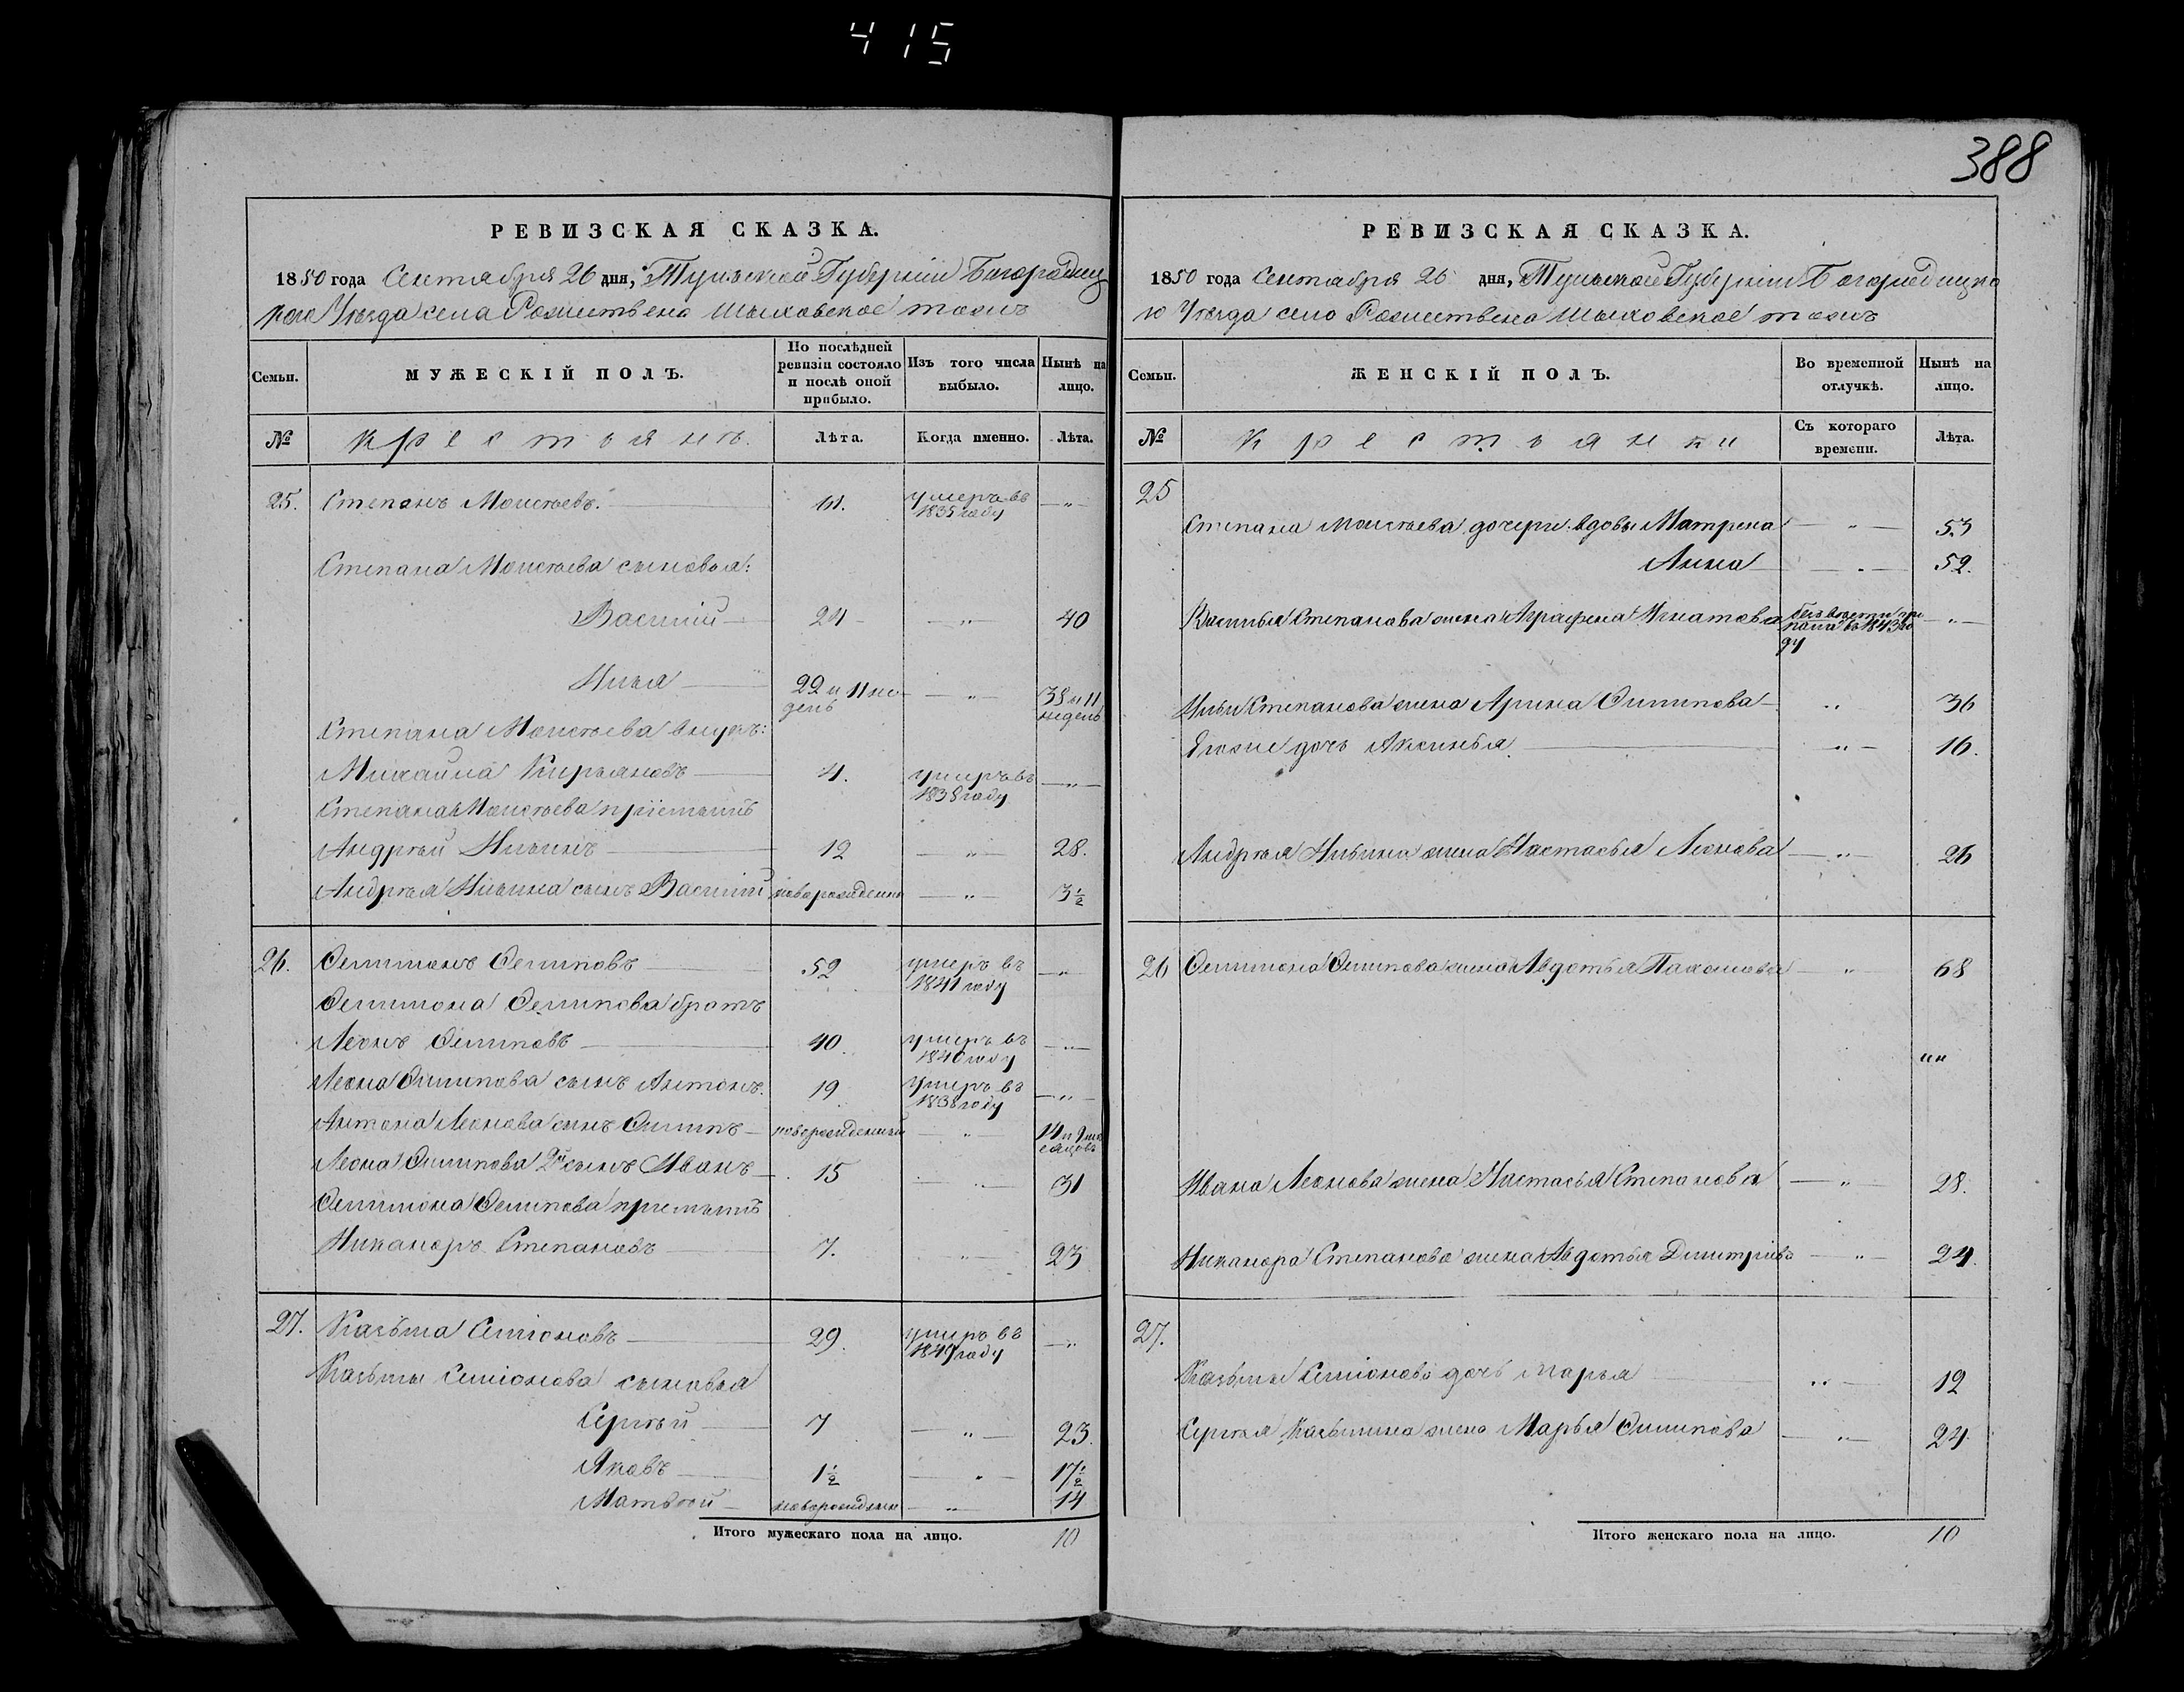 415
388
РЕВИЗСКАЯ СКАЗКА.
1850 года Сентября 26 дня, Тульской Губерніи Богородиц
каго Уезда села Рожествено тожъ
Семьи.
МУЖЕСКІЙ ПОЛЪ.
По послѣдней ревизіи состояло и послѣ оной прибыло.
Изъ того числа выбыло.
Нынѣ на лицо.
№
Крестьянъ.
Лѣта.
Когда именно.
Лѣта.
25. Степанъ Моисѣевъ. умеръ въ 1835 году — „ —
Степана Моисѣева сыновья:
Василій 24 — „ — 40
Илья 22 и 11 недель — „ — 38 и 11 недель
Степана Моисѣева внукъ:
Михайла Кирьяновъ 4. умеръ въ 1838 году — „ —
Степана Моисѣева пріемышъ
Андрѣй Ильинъ 12 — „ — 28.
Андрѣя Ильина сынъ Василій новорожденны — „ — 3½
26. Филимонъ Филиповъ 52 умеръ въ 1841 году — „
Филимона Филипова братъ
Леонъ Филиповъ 40 умеръ въ 1840 году — „ —
Леона Филипова сынъ Антонъ. 19 умеръ въ 1838 году — „ —
Антона Леонова сынъ Филипъ новорожденный — „ — 14 и 9 месяцовъ
Леона Филипова 2й сынъ Иванъ 15 — „ — 31
Филимона Филипова пріемышъ
Никаноръ Степановъ 7. — „ — 23
27. Казьма Симоновъ 29. умеръ въ 1849 году — „
Казьмы Симонова сыновья
Сергѣй 7 — „ — 23.
Яковъ 1½ — „ — 17½
Матвѣй новорожденны — „ — 14
Итого мужескаго пола на лицо. 10
РЕВИЗСКАЯ СКАЗКА.
1850 года Сентября 26 дня, Тульской Губерніи Богородицка
го Уезда село Рожествено тожъ
Семьи.
ЖЕНСКІЙ ПОЛЪ.
Во временной отлучкѣ.
Нынѣ на лицо.
№
Крестьянки
Съ котораго времени.
Лѣта.
25
Степана Моисѣева дочери вдовы Матрена — „ — 53
Анна — „ — 52.
Василья Степанова жена Аграфена Игнатова безъ вести пропала въ 1843 году — „ —
Ильи Степанова жена Арина Филипова „ 36
Ево же дочь Аксинья „ — 16.
Андрѣя Ильина жена Настасья Леонова — „ — 26
26 Филимона Филипова жена Авдотья Пахомова — „ 68
„„
Ивана Леонова жена Настасья Степанова — „ — 28.
Никанора Степанова жена Авдотья Дмитріева — „ — 24.
27.
Казьмы Симонова дочь Марья „ — 12
Сергѣя Казьмина жена Марья Филипова — „ — 24
Итого женскаго пола на лицо. 10